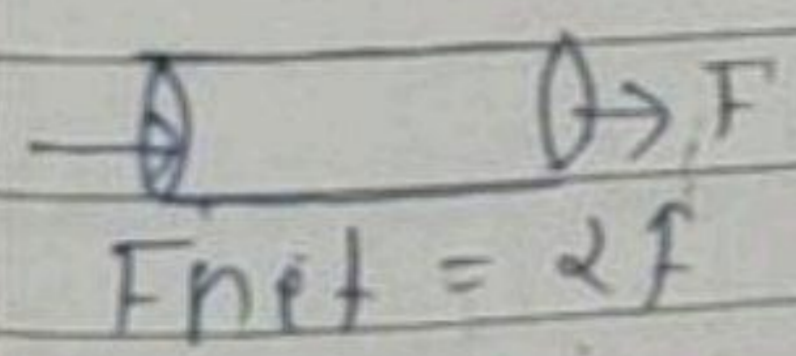 F
Fnet = 2F